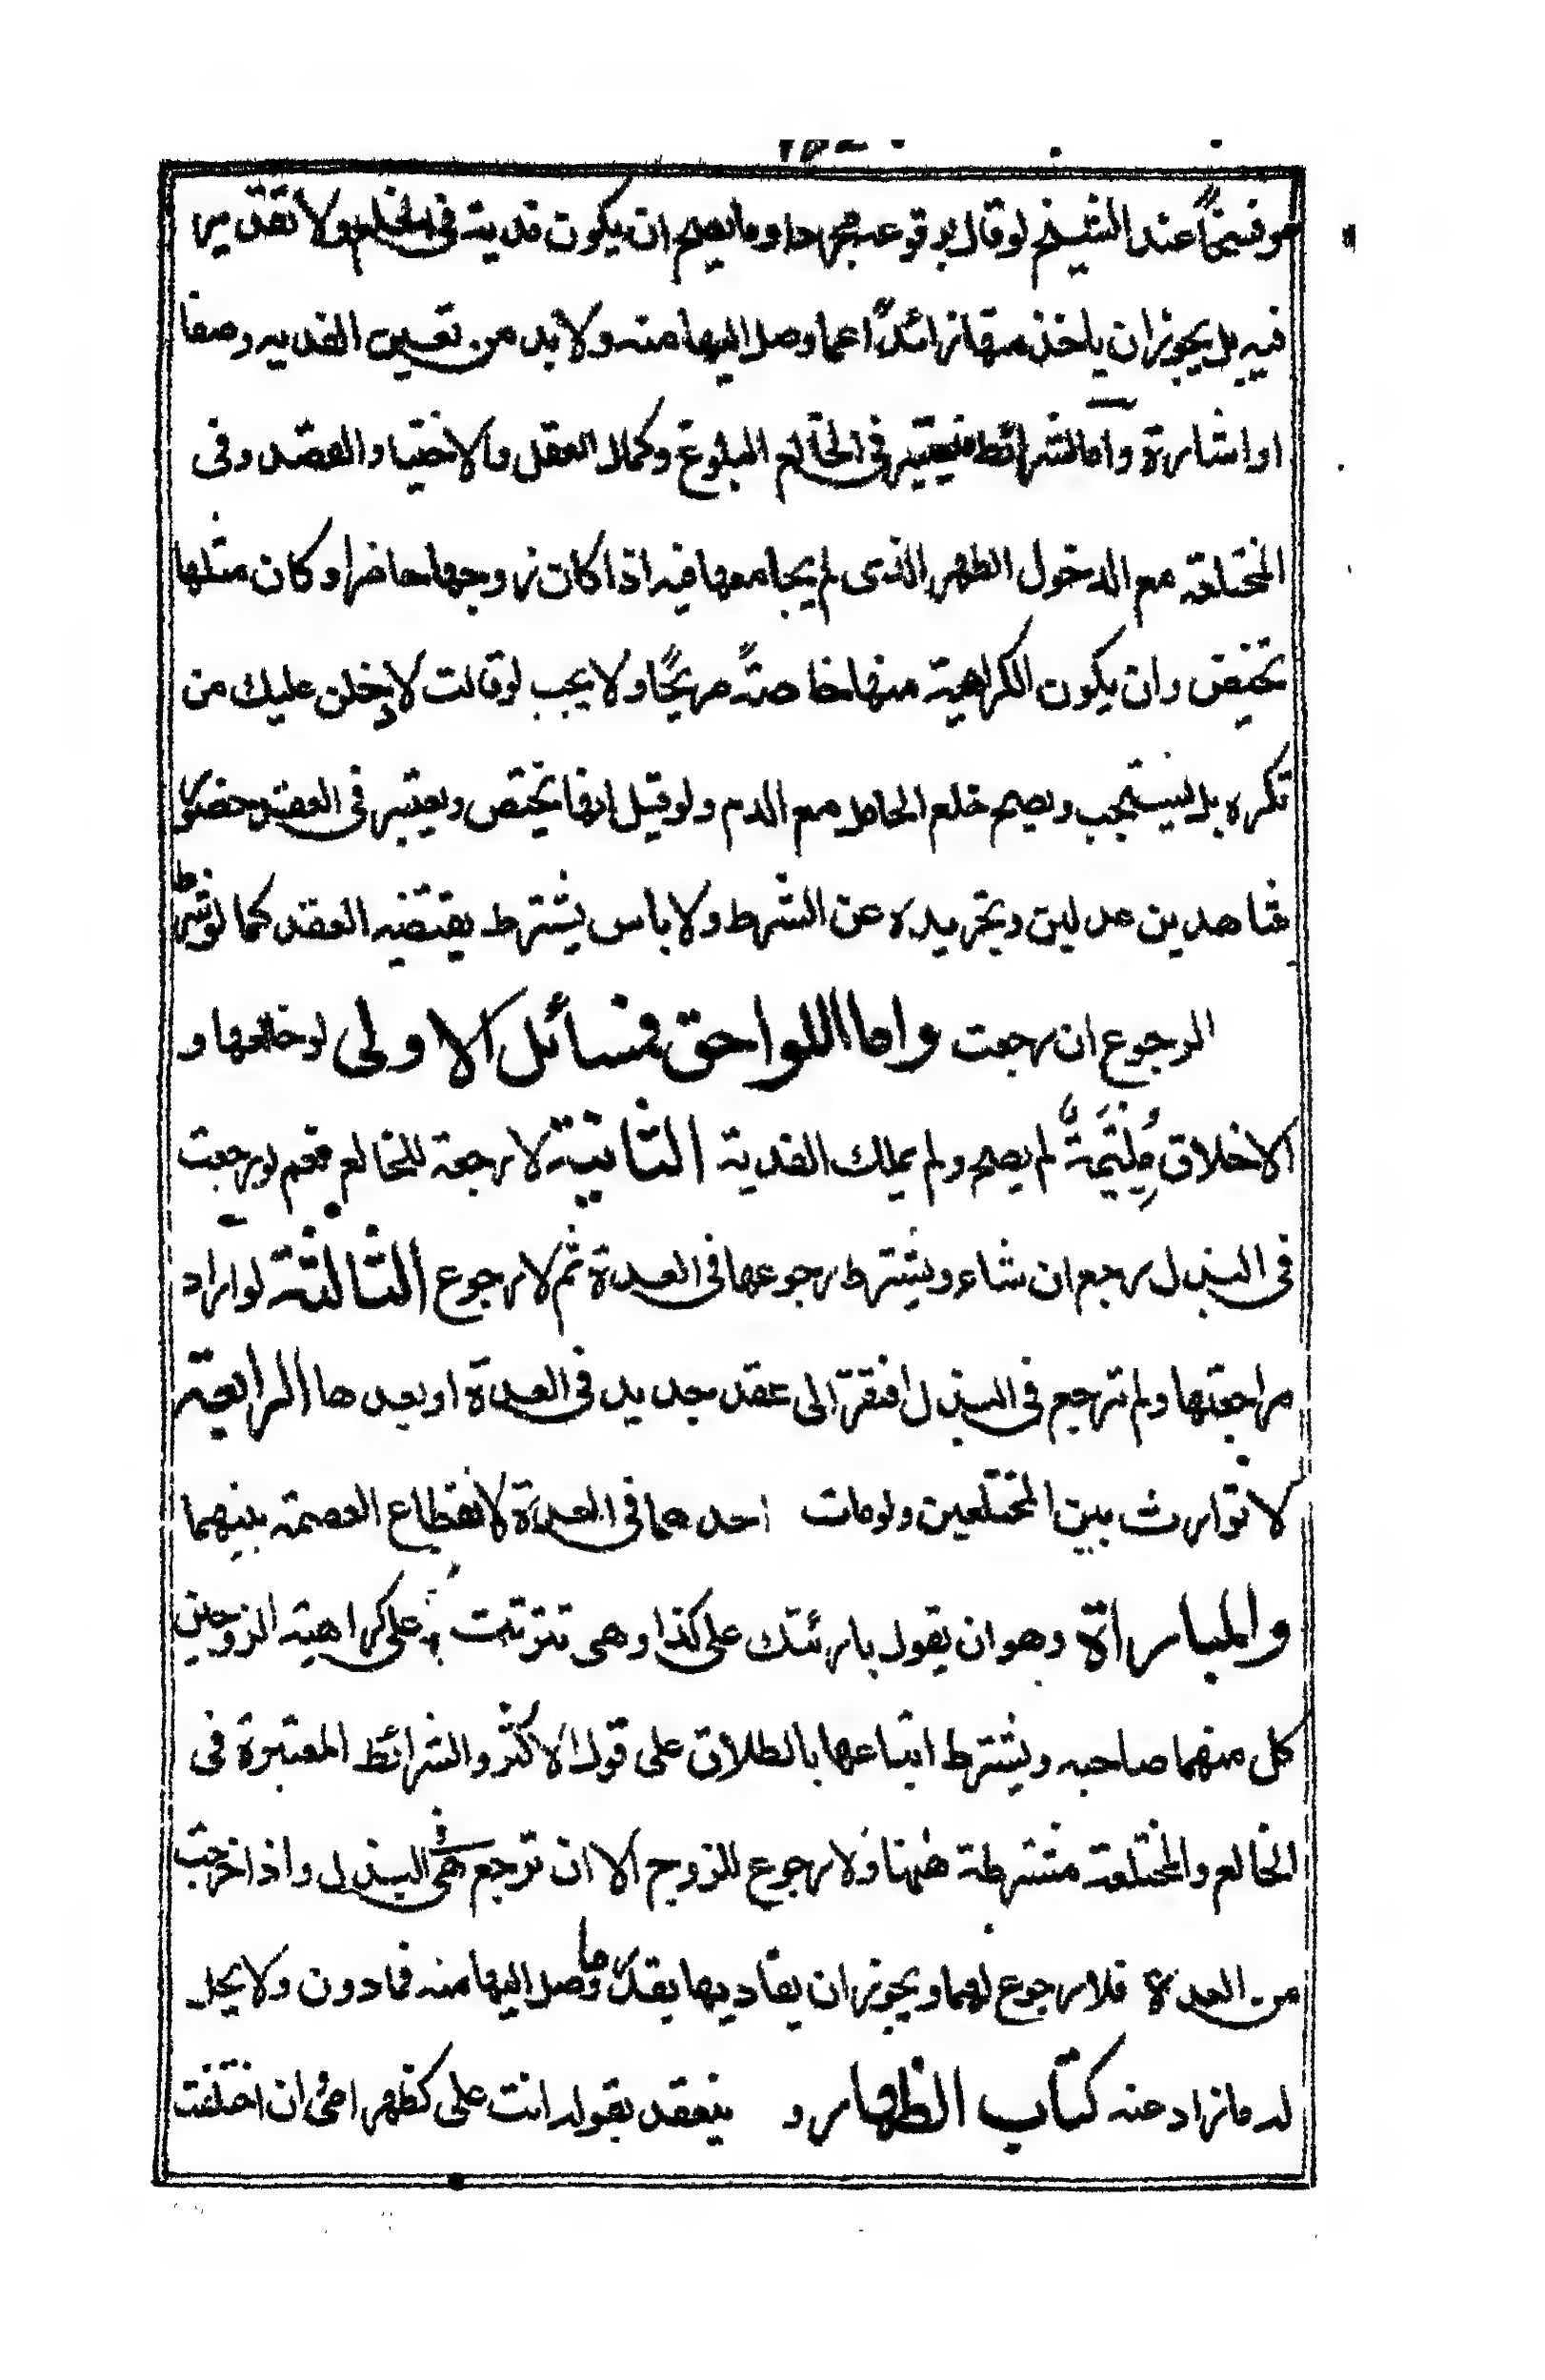 هو فسخاً عند الشيخ لو قال بوقوعه مجردا وما يصح ان يكون فدية فى الخلع ولا تقدير
فيه بل يجوز ان ياخذ منها زائداً عما وصل اليها منه ولا بد من تعيين الفديه وصفا
او اشارة واما الشرائط فيعتبر فى الخالع البلوغ وكمال العقل والاختيار والقصد وفى
المختلعة مع الدخول الطهر الذى لم يجامعها فيه اذا كان زوجها حاضرا وكان مثلها
تحيض وان يكون الكراهية منها خاصةً صريحًا ولا يجب لو قالت لادخلن عليك من
تكره بل يستحب ويصح خلع الحامل مع الدم ولو قيل انها تحيض ويعتبر فى العقد حضور
شاهدين عدلين وتجريده عن الشرط ولا باس بشرط يقتضيه العقد كما لو شرط
الرجوع ان رجعت واما اللواحق فمسائل الاولى لو خالعها و
الاخلاق مُلتئمةٌ لم يصح ولم يملك الفدية الثانية لا رجعة للخالع نعم لو رجعت
فى البذل رجع ان شاء ويشترط رجوعها فى العدة ثم لا رجوع الثالثة لو اراد
مراجعتها ولم ترجع فى البذل افتقر الى عقد جديد فى العدة او بعدها الرابعة
لا توارث بين المختلعين ولومات احدهما فى العدة لانقطاع العصمة بينهما
والمباراة وهو ان يقول بارئتك على كذا وهى تترتب على كراهية الزوجين
كل منهما صاحبه ويشترط اتباعها بالطلاق على قول الاكثر والشرائط المعتبرة فى
الخالع والمختلعة مشترطة ههنا ولا رجوع للزوج الا ان ترجع هى فى البذل واذا خرجت
من العدة فلا رجوع لهما ويجوز ان يفاديها بقدر ما وصل اليها منه فما دون ولا يحل
له ما زاد عنه كتاب الظهار و ينعقد بقوله انت على كظهر امى ان اختلفت